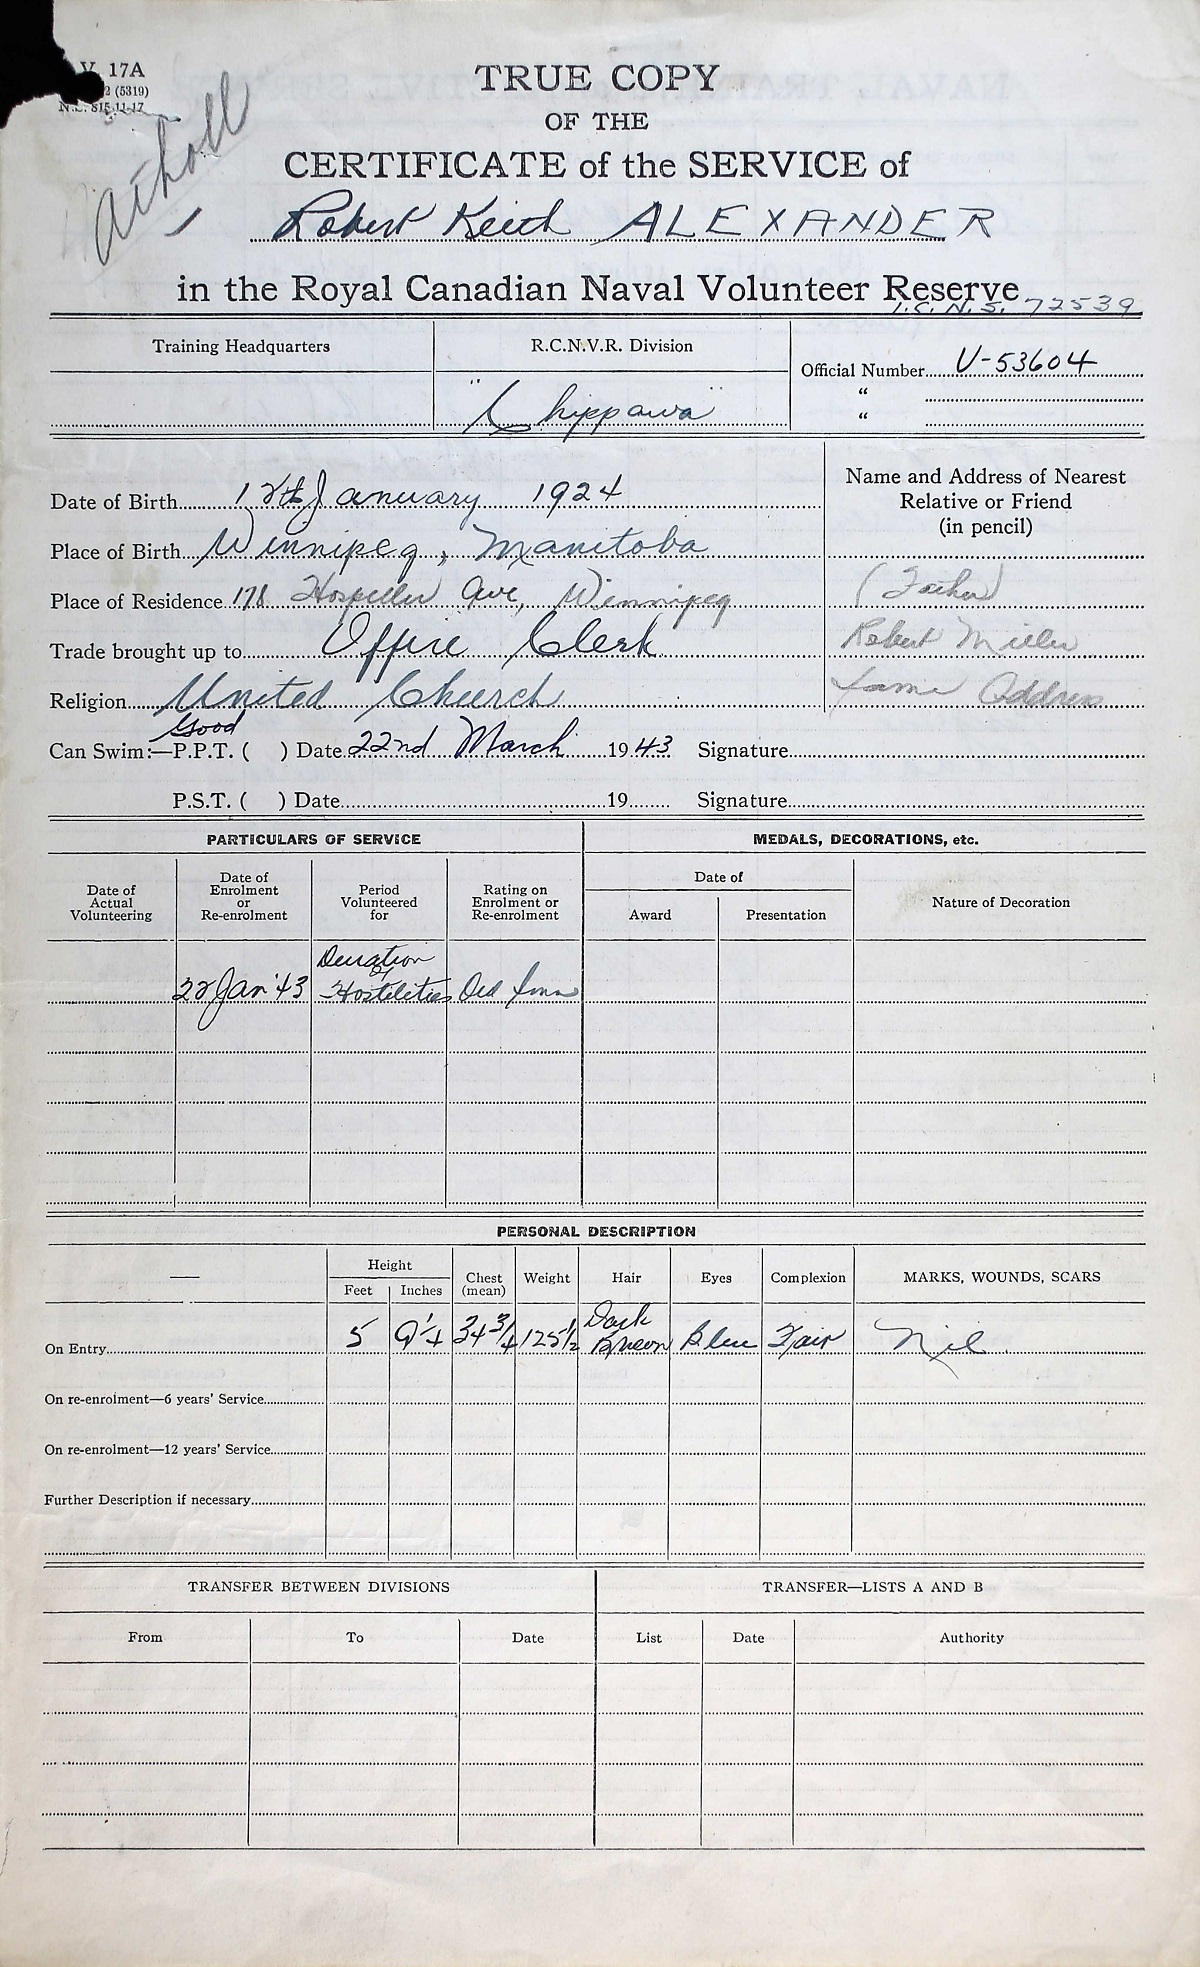 V. 17A
2 (5319)
N.S. 815-11-17
Athott
TRUE COPY
OF THE
CERTIFICATE of the SERVICE of
Robert Keith ALEXANDER
in the Royal Canadian Naval Volunteer Reserve
I.C.N.S. 72539
Training Headquarters
R.C.N.V.R. Division
"Chippawa"
Official Number U-53604
"
"
Date of Birth 12th January 1924
Place of Birth Winnipeg, Manitoba
Place of Residence 178 Hespeler Ave, Winnipeg
Trade brought up to Office Clerk
Religion United Church
Name and Address of Nearest
Relative or Friend
(in pencil)
(Father)
Robert Miller
Same Address
Good
Can Swim:—P.P.T. ( ) Date 22nd March 1943 Signature
P.S.T. ( ) Date 19 Signature
PARTICULARS OF SERVICE
MEDALS, DECORATIONS, etc.
Date of
Actual
Volunteering
Date of
Enrolment
or
Re-enrolment
Period
Volunteered
for
Rating on
Enrolment or
Re-enrolment
Date of
Award
Presentation
Nature of Decoration
22 Jan '43
Duration
of
Hostilities
Ord
PERSONAL DESCRIPTION
—
Height
Feet
Inches
Chest
(mean)
Weight
Hair
Eyes
Complexion
MARKS, WOUNDS, SCARS
On Entry 5 9¼ 34¾ 125½ Dark Brown Blue Fair Nil
On re-enrolment—6 years' Service
On re-enrolment—12 years' Service
Further Description if necessary
TRANSFER BETWEEN DIVISIONS
TRANSFER—LISTS A AND B
From
To
Date
List
Date
Authority